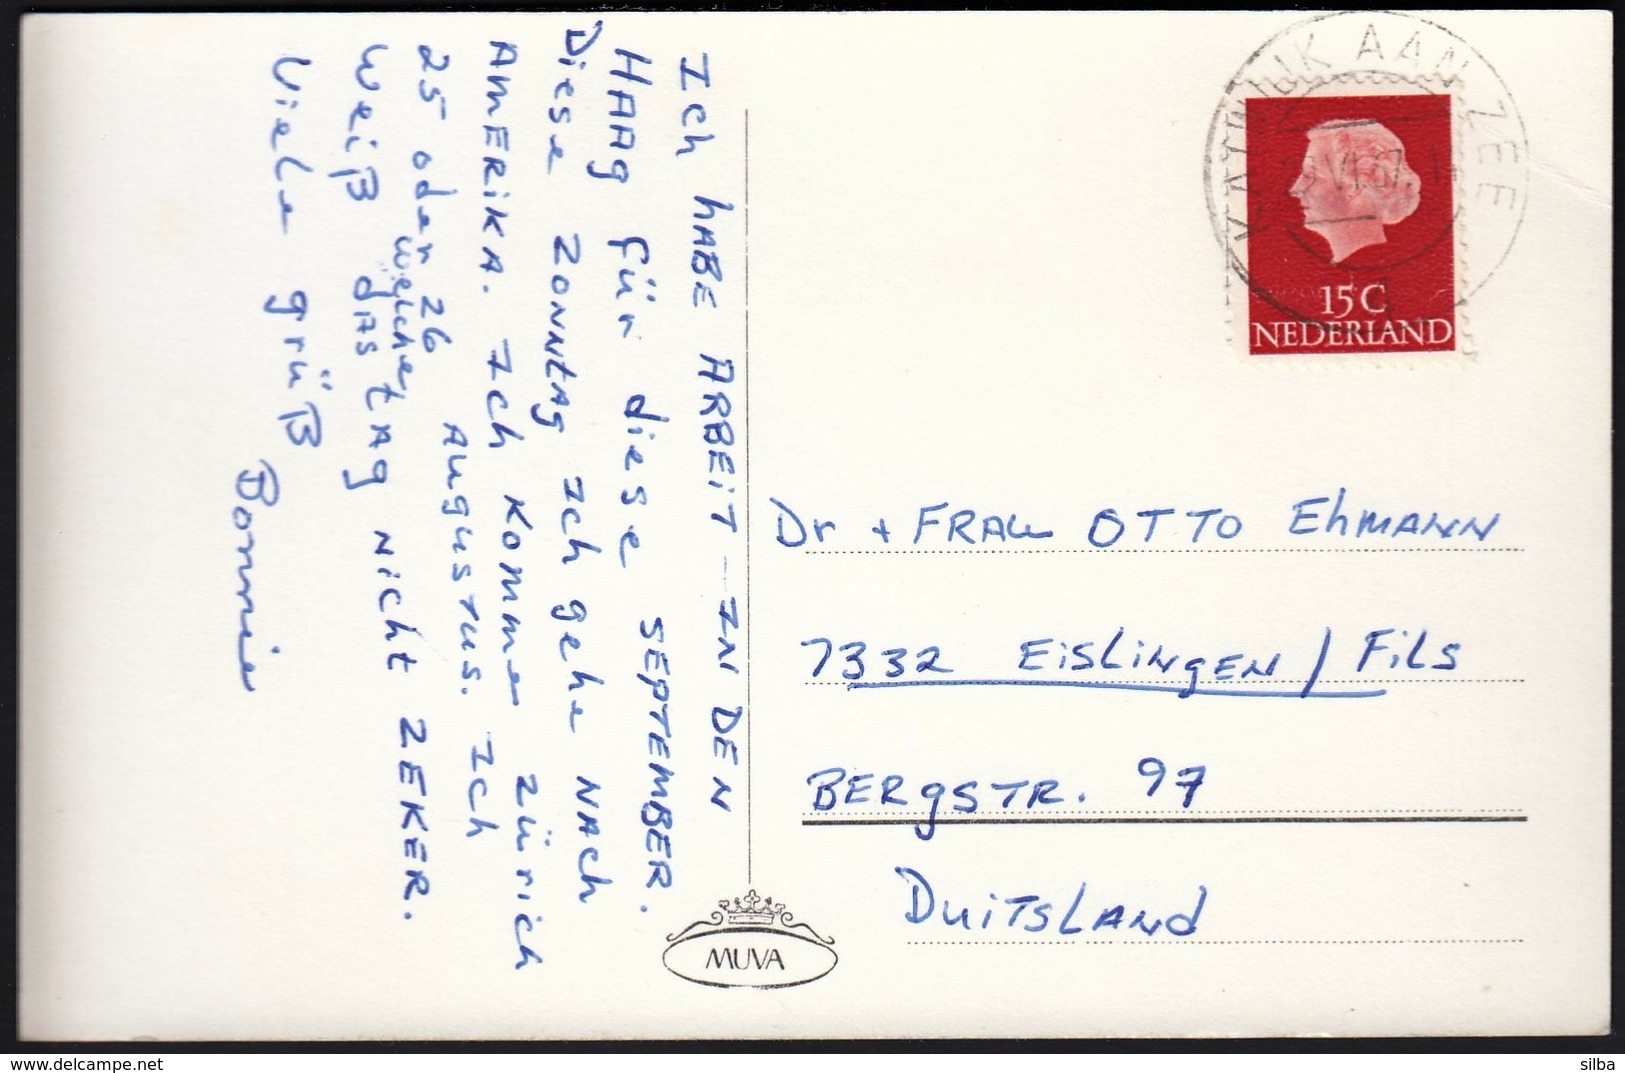 Ich HABE ARBEiT - IN DEN
HAAg für diese SEPTEMBER.
Diese ZONNtAg Ich gehe NACh
AMERiKA. Ich KOMMe Zürich
25 oder 26 AuguSTuS. Ich
Weiß welche
dAS tAg Nicht ZEKER.
Viele grüß
Bonnie
KATWIJK AAN ZEE
VI.67.1
15 C
NEDERLAND
Dr + FRAu OTTO EhMANN
7332 EiSLiNgEN / FiLS
BERgSTR. 97
DuiTSLANd
MUVA
silba